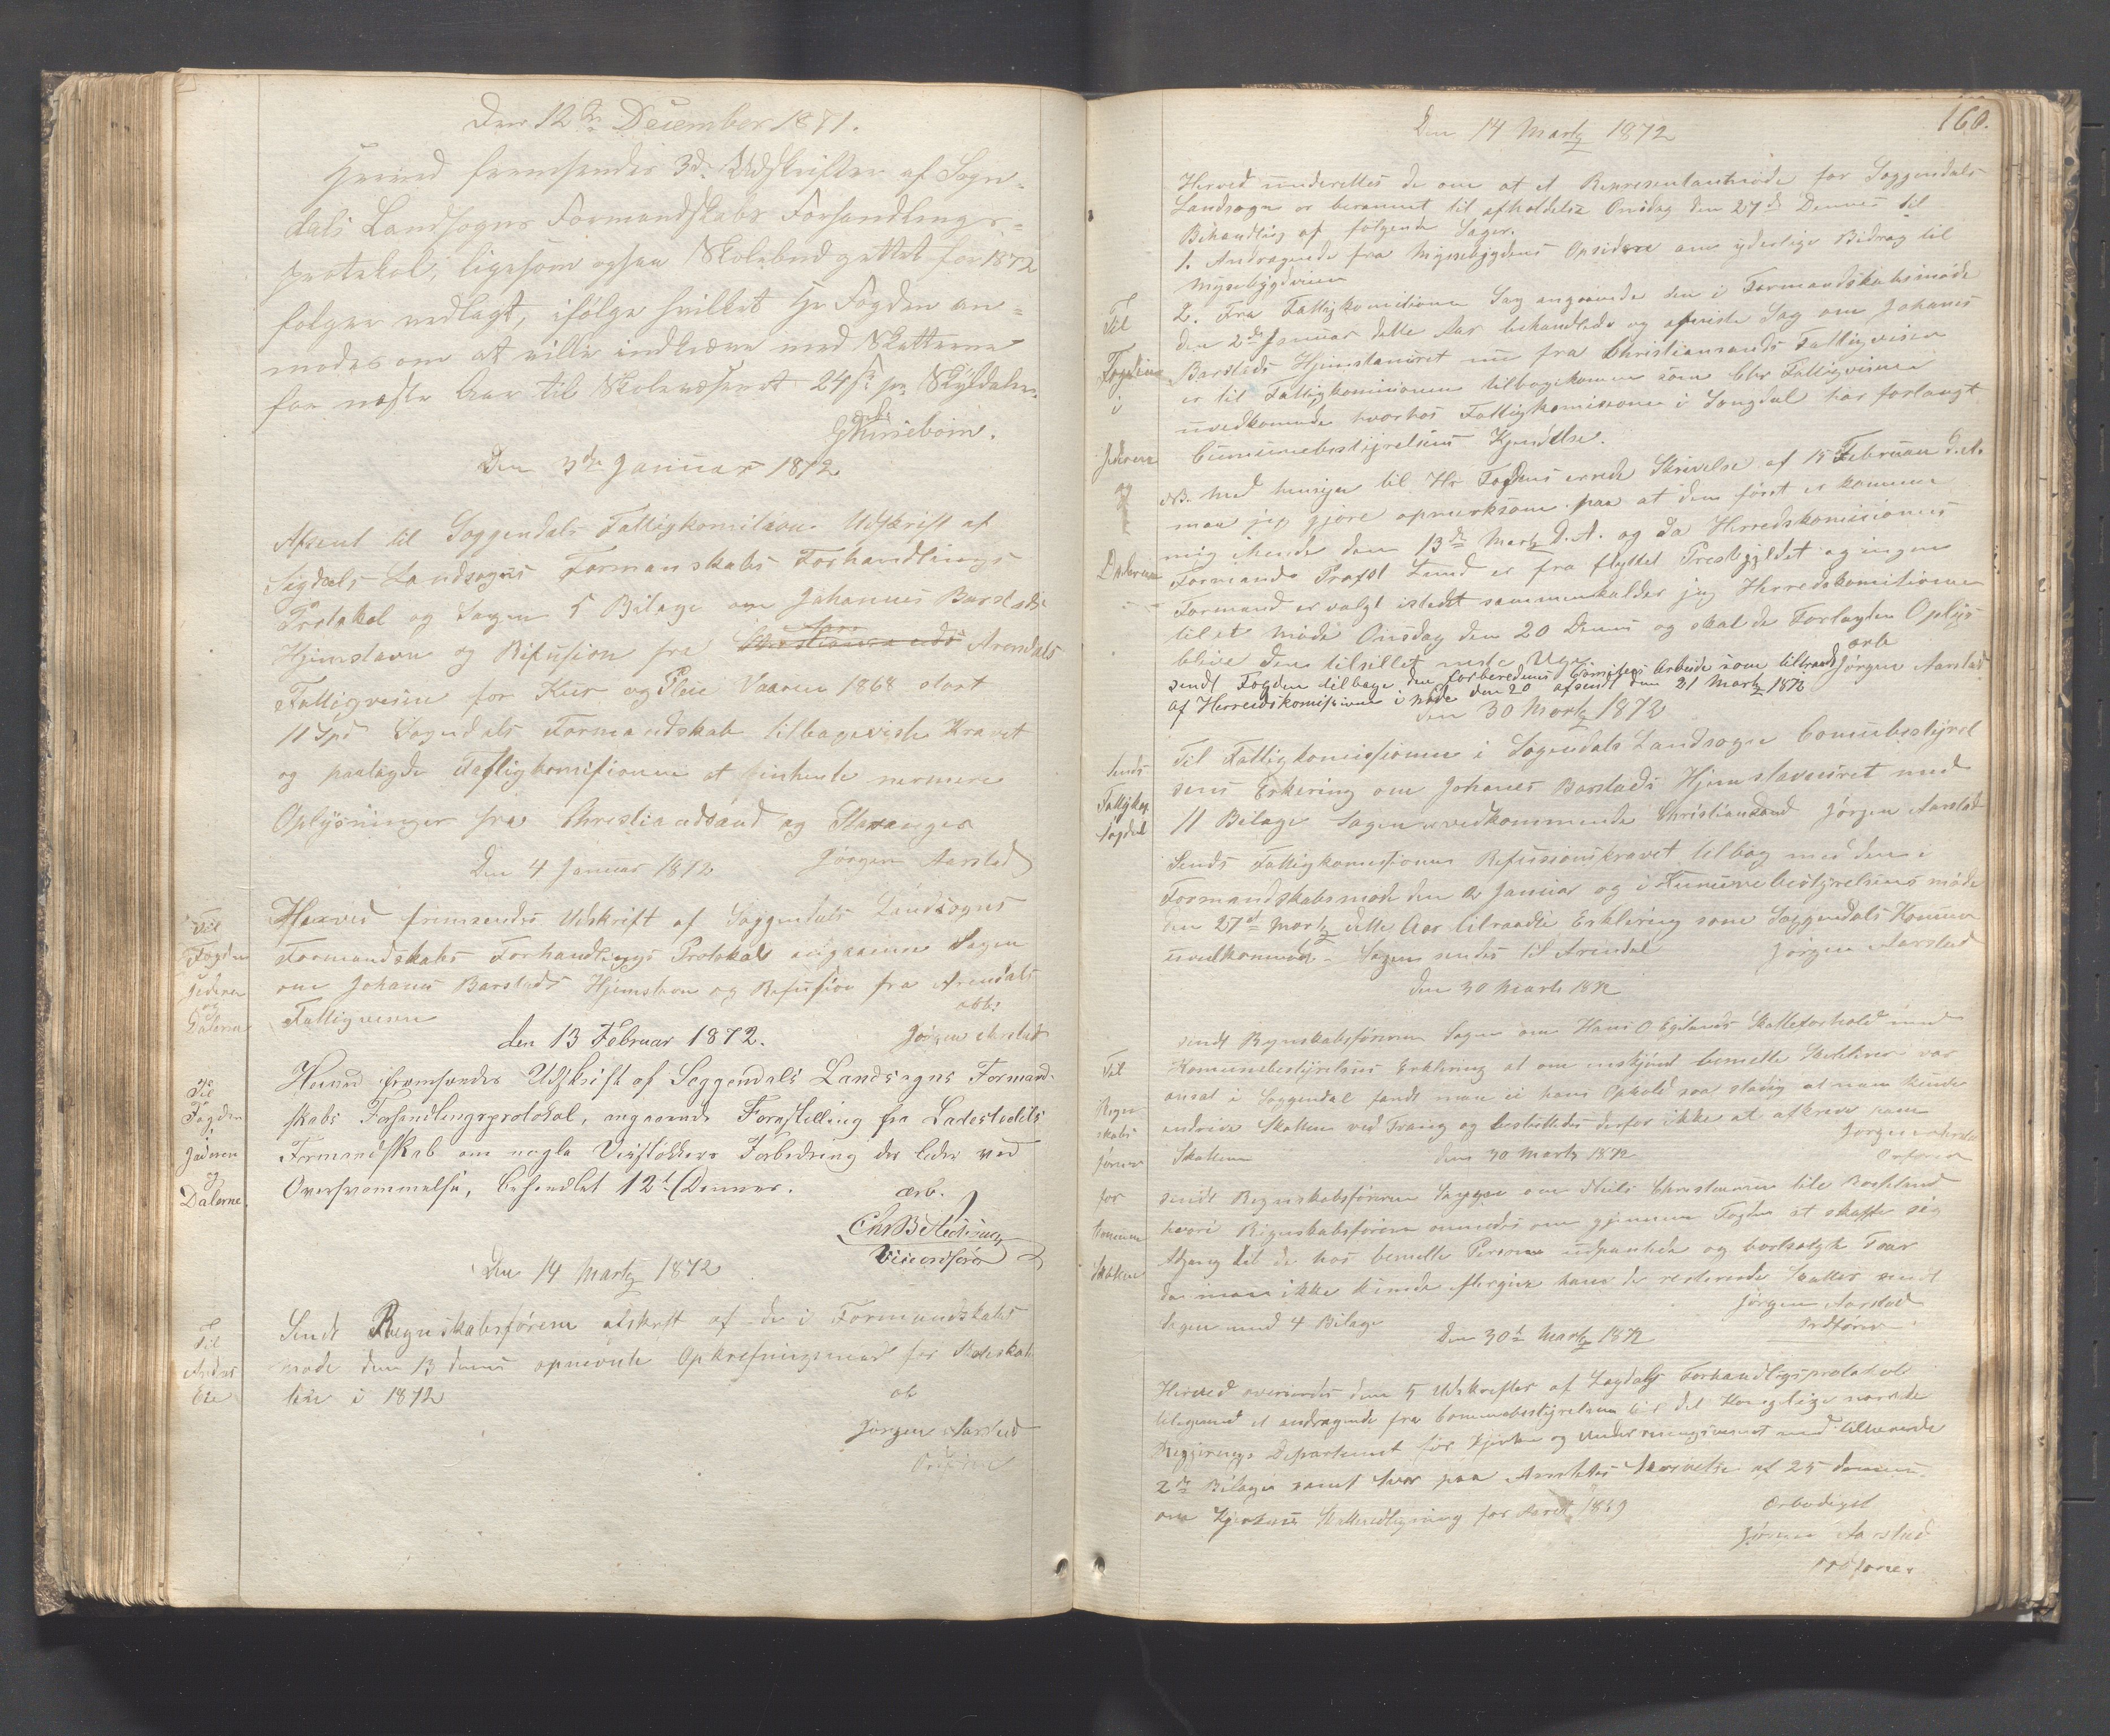 Den 12te December 1871.
Herved fremsendes 3de Udskrifter af Sogn-
dals Landsogns Formandskabs Forhandlings-
protokol, ligesom ogsaa Skolebudgettet for 1872
følger vedlagt, ifølge hvilket Hr Fogden an-
modes om at ville indkræve med Skatterne
for næste Aar til Skolevæsenet 24 s pr Skylddaler.
Den 3die Januar 1872
Afsent til Soggendals Fattigkomision Udskrift af
Sogdals Landsogns Formanskabs Forhandlings
Protokol og Sagen 5 Bilage om Johannes Barstads
Hjemstavn og Refusion fra Arendals
Fattigvesen for Kur og Pleie Vaaren 1868 stort
11 Spd Sogndals Formandskab tilbageviste Kravet
og paalagde Fattigkomisionen at inhente nermere
Oplysninger fra Christiandsand og Stavanger
Den 4 Januar 1872 Jørgen Aarstad
Til Fogden Jederen og Dalerne
Herved fremsendes Udskrift af Soggendals Landsogns
Formandskabs Forhandlings Protokol angaaenne Sagen
om Johanes Barstads Hjemstavn og Refusion fra Arendals
Fattigvesen
den 13 Februar 1872. Jørgen Aarstad
Til Fogden i Jæderen og Dalerne.
Herved fremsendes Udskrift af Soggendals Landsogns Formand-
skabs Forhandlingsprotokol, angaaende Forestilling fra Ladestedets
Formandskab om nogle Veistykkers Forbedring der lider ved
Oversvømmelse, behandlet 12te Dennes.
ærb.
Viceordfører
Den 14 Martz 1872
Til
Sendt Regnskabsføreren afskrift af de i Formandskabs
møde den 13 dennes opnevnte Opkrefningsmend for Skoleskat
ten i 1872
Jørgen Aarstad
160.
Den 14 Martz 1872
Herved underettes de om at et Representantmøde for Soggendals
Landsogn er berammet til afholdelse Onsdag den 27de Dennes til
Behandling af følgende Sager.
1. Andragende fra Mysebygdens Opsidere om yderlige Bidrag til
Mysebygdveien
Til Fogden i Jederen og Dalerne
2. Fra Fattigkomitionen Sag angaaende den i Formandskabsmøde
den 2de Januar dette Aar behandlede og afviste Sag om Johanes
Barstads Hjemstavnsret nu fra Christiansands Fattigvesen
er til Fattigkomisionen tilbagekommen som Chr Fattigvesen
uvedkommende hvorhos Fattigkomisionen i Songdal har forlangt
Comunebestyrelsens Kjendelse.
NB. Med hensyn til Hr Fogdens ærede Skrivelse af 15 Februar d.A.
maa jeg gjøre opmerksom paa at den først er kommen
mig ihende den 13de Martz D.A. og da Herredskomisionens
Formand Profst Lund er fra flyttet Prestgjeldet og ingen
Formand er valgt istedet sammenkalder jeg Herredskomitionen
til et Møde Onsdag den 20 Dennes og skal de Forlangten Oplys
blive dem tilstillet neste Uge ærb
Jørgen Aarstad
sendt Fogden tilbage den forberedens Comitees Arbeide som tiltraadt
af Herredskomisionen i møde den 20 afsendt den 21 Martz 1872
den 30 Martz 1872
Sends Fattigkom Sogdal
Til Fattigkomissionen i Sogendals Landsogn Comunebestyrel
sens Erkering om Johanes Barstads Hjemstavnsret med
11 Bilage Sagen uvedkommende Christiansand Jørgen Aarstad
Sends Fattigkomisionen Refusionskravet tilbag med den i
Formandskabsmøde den 2 Januar og i Kumunebestyrelsens møde
den 27de Martz dette Aar tilraadte Erklering som Soggendals Komune
uvedkommende - Sagen sendes til Arendal Jørgen Aarstad
Den 30 Marts 1872
Til Regnskabsfører for Komune Skatten
sendt Regnskabsføreren Sagen om Hans O Egelands Skatteforhold med
Komunebestyrelsens Erklering at om enskjønt bemelte Skolelærer var
ansat i Soggendal fandt man ei hans Ophold saa stadig at man kunde
inddrive Skatten ved Tvang og besluttedes derfor ikke at afkreve ham
Skatten den 30 Marts 1872 Jørgen Aarstad
sendt Regnskabsføreren Saggen om Niels Christensen lille Rochlund
hvori Regnskabsføreren anmodes om gjennem Fogden at skaffe sig
Adgang til de hos bemelte Person udpantede og bortsolgte Faar
da man ikke kunde eftergive ham de resterende Skatter sendt
Sagen med 4 Bilage Jørgen Aarstad
Ordfører
Den 30te Martz 1872
Herved oversendes dem 5 Udskrifter af Sogdals Forhandligsprotokol
tilligemed et andragende fra Comunebestyrelsen til det Kongelige norske
Regjerings Departement for Kjerke og Undervisningsvesenet med tilhørende
2de Bilager samt Svar paa Amtets Skrivelse af 25 dennes
om Kjerkens Skatteudligning for Aaret 1859
Ærbødigst
Jørgen Aarstad
Ordfører